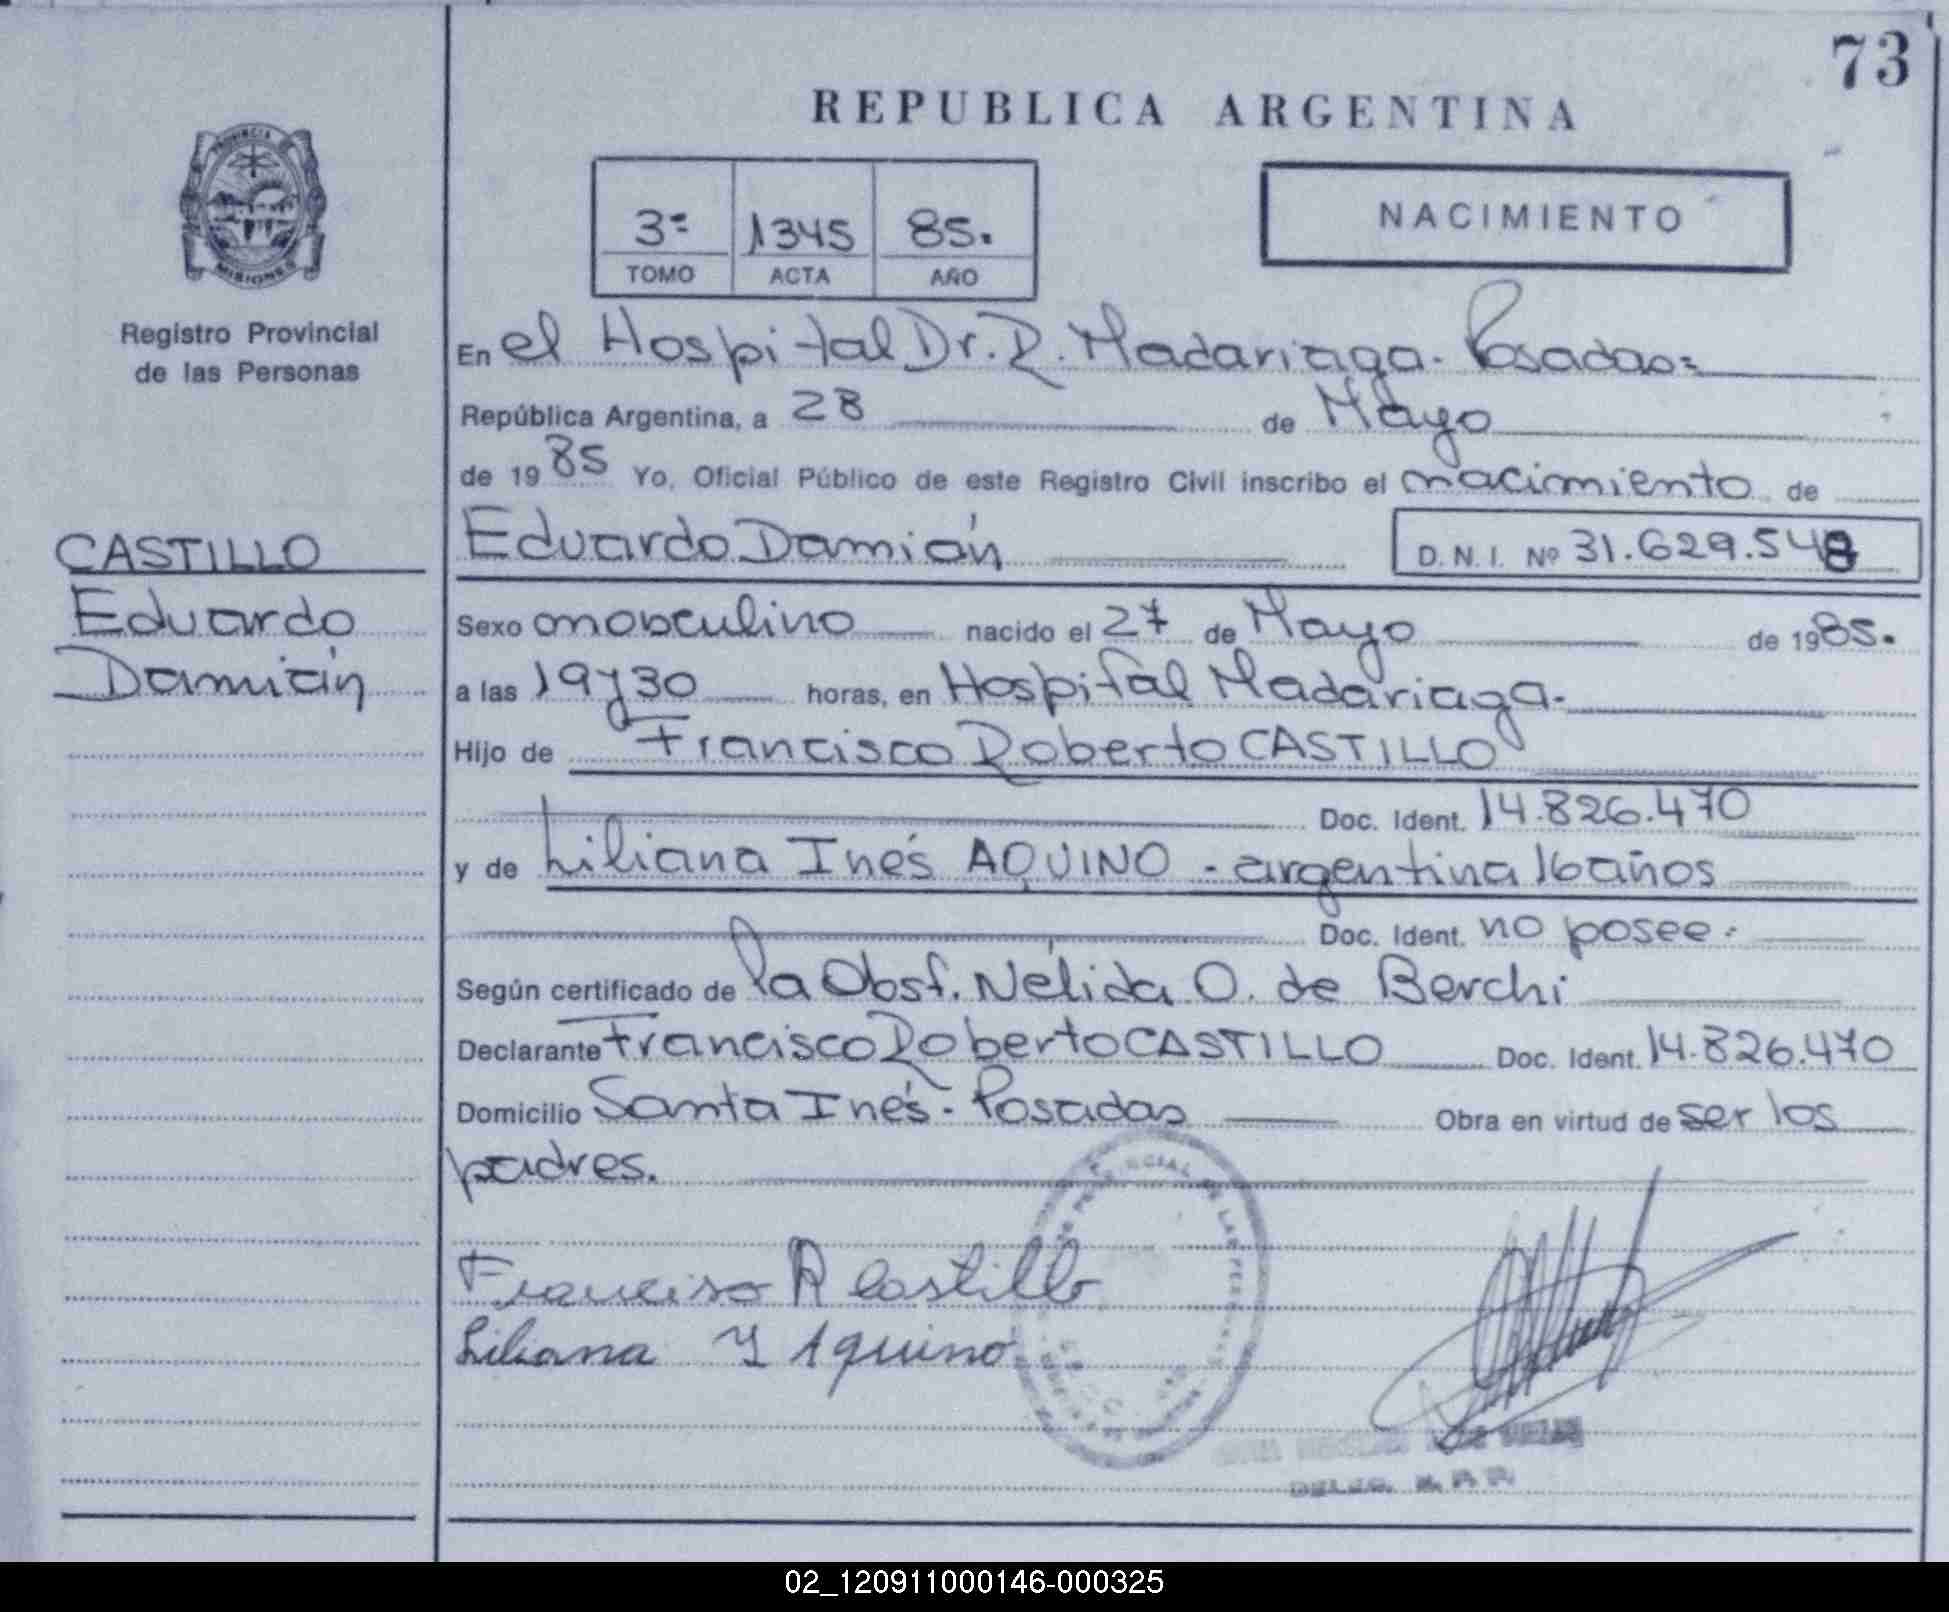 73
REPUBLICA ARGENTINA
PROVINCIA
MISIONES
Registro Provincial
de las Personas
3º 1345 85.
TOMO ACTA AÑO
NACIMIENTO
En el Hospital Dr. R. Madariaga - Posadas=
República Argentina, a 28 de Mayo
de 1985 Yo, Oficial Público de este Registro Civil inscribo el nacimiento de
CASTILLO
Eduardo
Damián
Eduardo Damián D.N.I. Nº 31.629.548
Sexo masculino nacido el 27 de Mayo de 1985.
a las 19 y 30 horas, en Hospital Madariaga.
Hijo de Francisco Roberto CASTILLO
Doc. Ident. 14.826.470
y de Liliana Inés AQUINO - argentina 16 años
Doc. Ident. no posee.
Según certificado de la Obst. Nélida O. de Berchi
Declarante Francisco Roberto CASTILLO Doc. Ident. 14.826.470
Domicilio Santa Inés - Posadas Obra en virtud de ser los
padres.
Francisco R Castillo
Liliana I Aquino
02_120911000146-000325